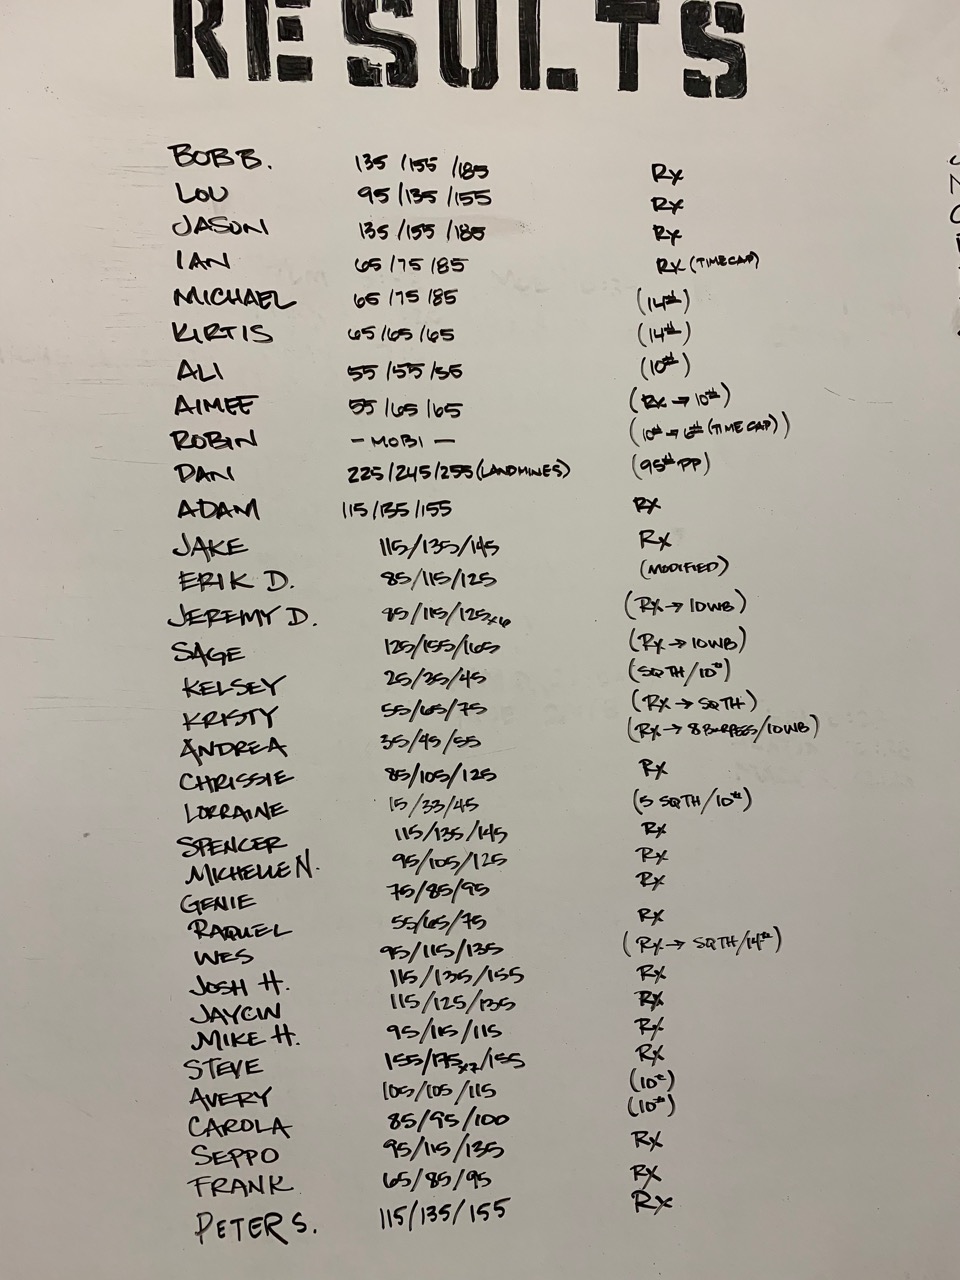 RESULTS
BOB B. 135/155/185 Rx
LOU 95/135/155 Rx
JASON 135/155/185 Rx
IAN 65/75/85 RX (TIME CAP)
MICHAEL 65/75/85 (14#)
KIRTIS 65/65/65 (14#)
ALI 55/55/55 (10#)
AIMEE 55/65/65 (RX → 10#)
ROBIN - MOBI - (10# → 6# (TIME CAP))
DAN 225/245/255 (LANDMINES) (95# PP)
ADAM 115/135/155 RX
JAKE 115/135/145 Rx
ERIK D. 85/115/125 (MODIFIED)
JEREMY D. 85/115/125x6 (RX → 10WB)
SAGE 125/155/165 (Rx → 10WB)
KELSEY 25/35/45 (SQTH/10#)
KRISTY 55/65/75 (RX → SQTH)
ANDREA 35/45/55 (RX → 8 BURPEES/10WB)
CHRISSIE 85/105/125 Rx
LORRAINE 15/33/45 (5 SQTH/10#)
SPENCER 115/135/145 Rx
MICHELLE N. 95/105/125 Rx
GENIE 75/85/95 Rx
RAQUEL 55/65/75 Rx
WES 95/115/135 (RX → SQTH/14#)
JOSH H. 115/135/155 Rx
JAYCIN 115/125/135 Rx
MIKE H. 95/115/115 Rx
STEVE 155/175x7/155 Rx
AVERY 105/105/115 (10#)
CAROLA 85/95/100 (10#)
SEPPO 95/115/135 RX
FRANK 65/85/95 RX
PETER S. 115/135/155 Rx